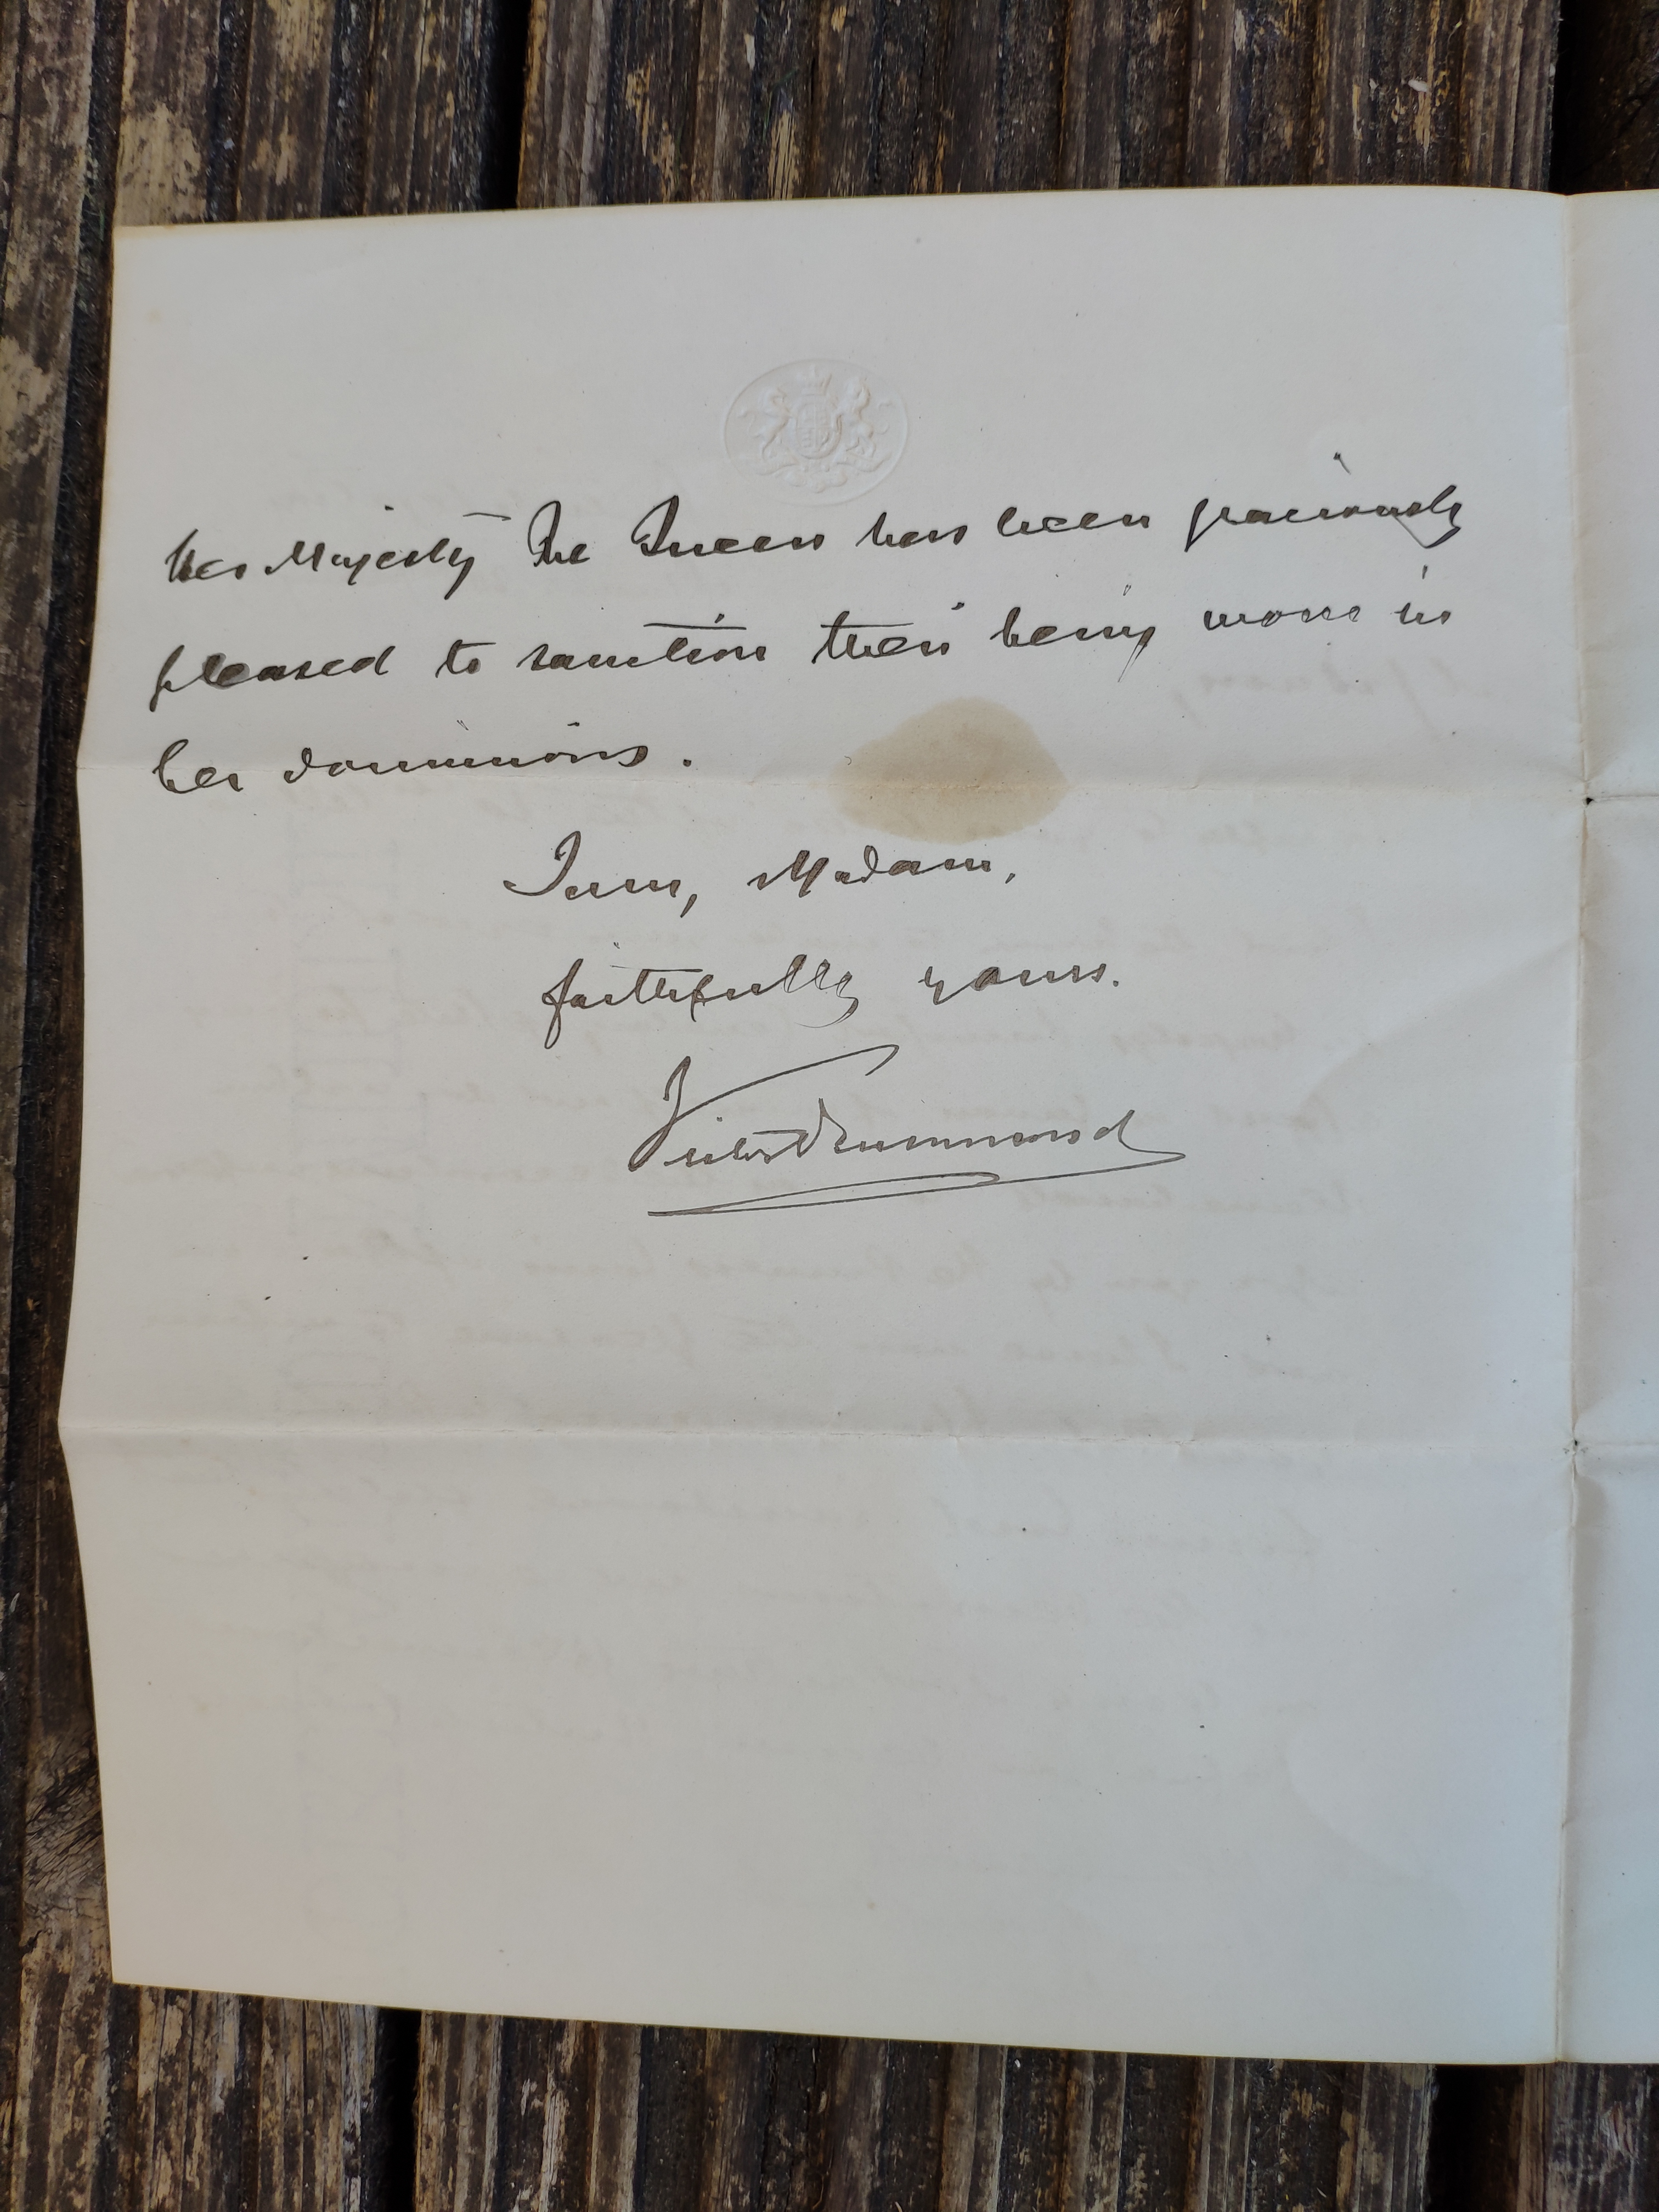 Her Majesty The Queen has been graciously
pleased to sanction their being worn in
her dominions.
I am, Madam,
faithfully yours.
Victor Drummond